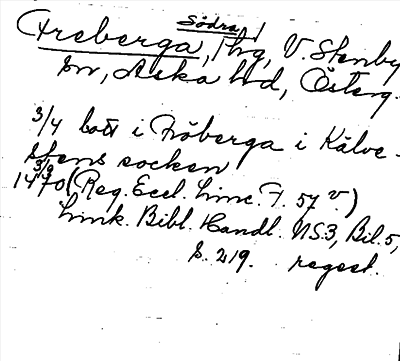 Södra
Freberga, Thg, V. Stenby
sn, Aska hd, Österg.
3/4 bott i Fröberga i Kälve-
stens socken
3/9
1470 (Reg. Eccl. Linc. F. 57 v.)
Link. Bibl. Handl. NS:3, Bil. 5,
S. 219. regest.